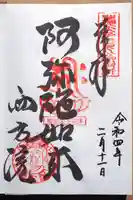 奉拝
令和四年
二月十一日
阿弥陀如来
西方院